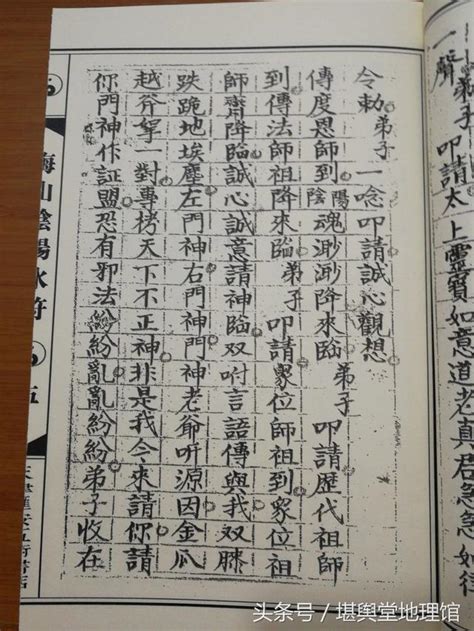 一聲弟子叩請太上靈寶如意道老真君急急如
令勅弟子一唸叩請誠心觀想
傳度恩師到陰陽魂渺渺降來臨弟子叩請歷代祖師
到傳法師祖降來臨弟子叩請眾位師祖到眾位祖
師齋降臨誠心誠意請神臨双咐言語傳與我双膝
跌跪地埃塵左門神右門神門神老爺听源因金瓜
越斧拿一對專拷天下不正神非是我今來請你請
你門神作証盟恐有邪法紛紛亂亂紛紛弟子收在
梅山陰陽水符 五
头条号/堪舆堂地理馆